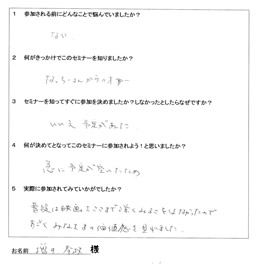 1 参加される前にどんなことで悩んでいましたか？
ない
2 何がきっかけでこのセミナーを知りましたか？
3 セミナーを知ってすぐに参加を決めましたか？しなかったとしたらなぜですか？
いいえ 予定があった
4 何が決めてとなってこのセミナーに参加されよう！と思いましたか？
急に予定が空いたため
5 実際に参加されてみていかがでしたか？
普段は映画をここまで深くみることはなかったので
みなさまの価値感も見れました
お名前 様